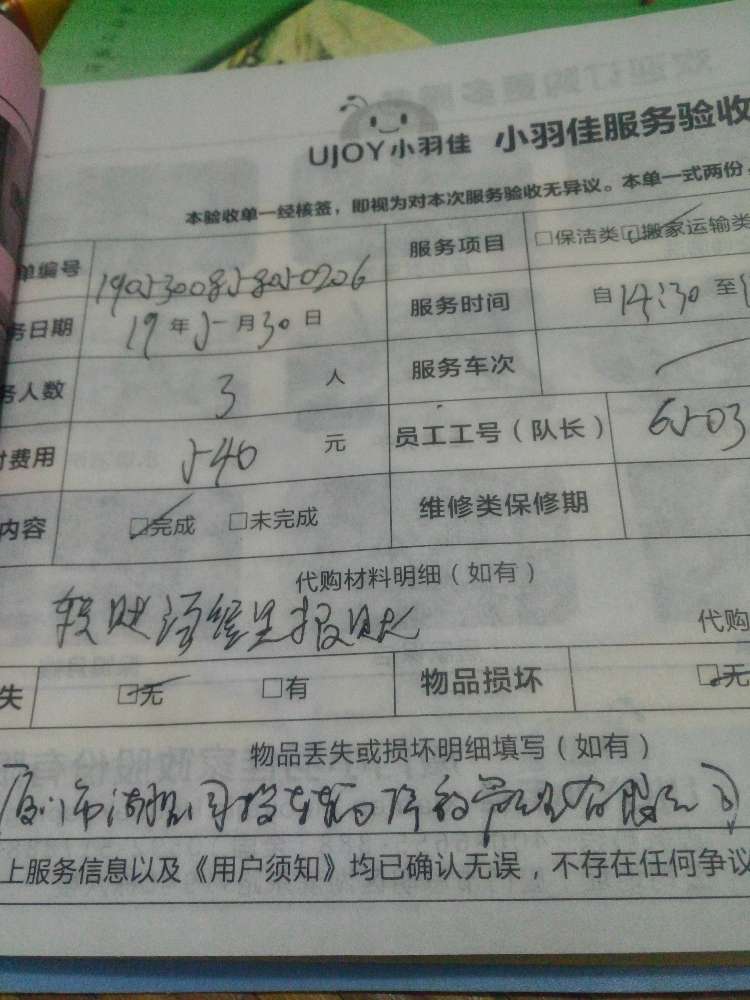 UJOY小羽佳 小羽佳服务验收
本验收单一经核签，即视为对本次服务验收无异议。本单一式两份，
单编号 1905300858050206 服务项目 □保洁类 ☑搬家运输类
务日期 19年5月30日 服务时间 自14:30至
务人数 3 人 服务车次
付费用 540 元 员工工号（队长） 6503
内容 ☑完成 □未完成 维修类保修期
代购材料明细（如有）
代购
失 ☑无 □有 物品损坏 ☑无
物品丢失或损坏明细填写（如有）
厦门市湖
上服务信息以及《用户须知》均已确认无误，不存在任何争议